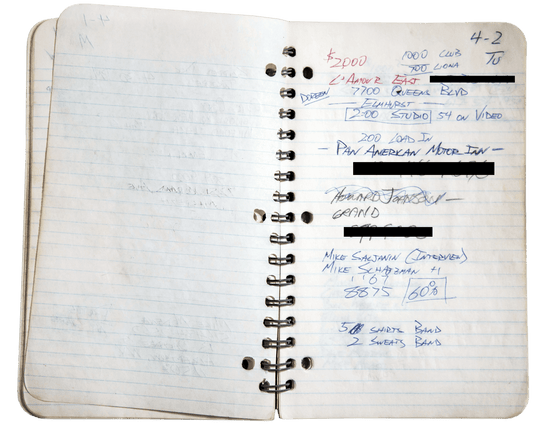 4-2
TU
$2000
1000 CLUB
500 LONA
L'AMOUR EAST
DOREEN 7700 QUEENS BLVD
ELMHURST
2:00 STUDIO 54 ON VIDEO
200 LOAD IN
- PAN AMERICAN MOTOR INN -
HOWARD JOHNSON -
GRAND
MIKE SAGJANIN (INTERVIEW)
MIKE SCHATZMAN +1
8875 60%
5 SHIRTS BAND
2 SWEATS BAND